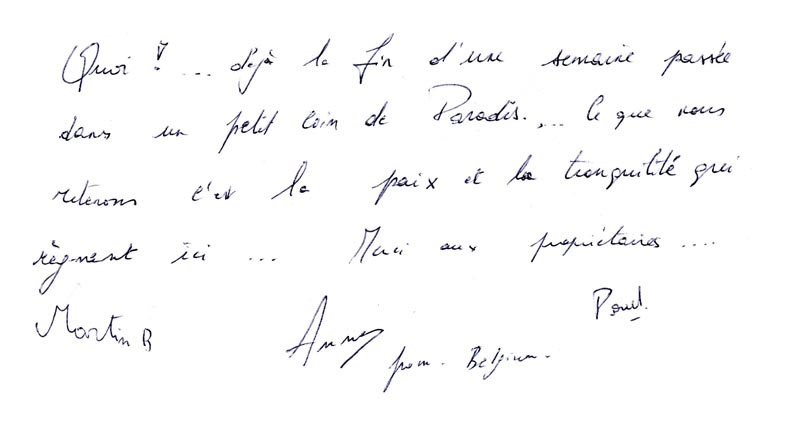 Quoi ! ... déjà la fin d'une semaine passée
dans un petit coin de Paradis. ... Ce que nous
retenons c'est la paix et la tranquilité qui
règnent ici ... Merci aux propriétaires ....
Martin B
Anne
Paul.
from. Belgium.